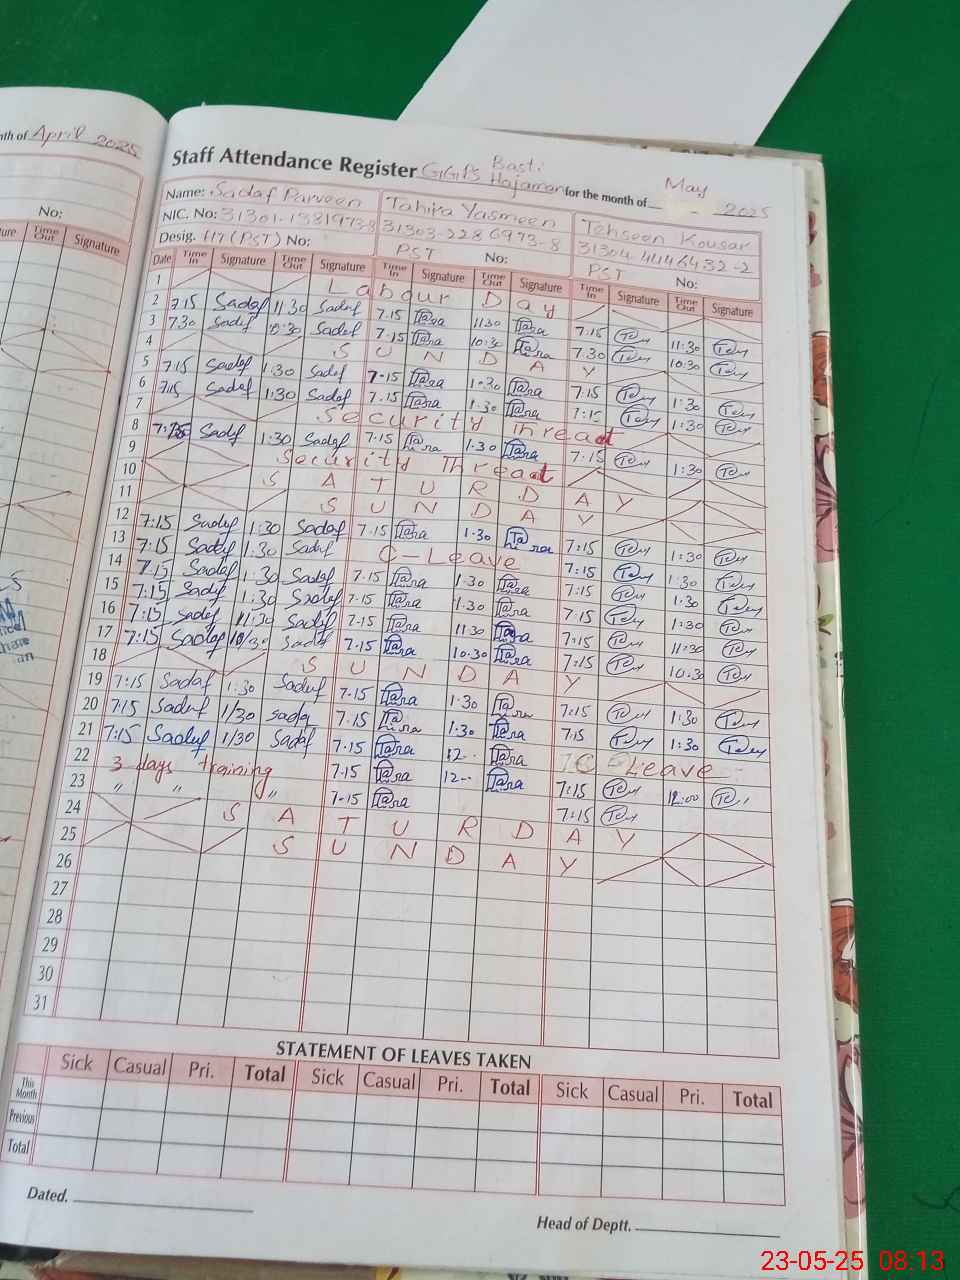 nth of April 2025
No:
Time Out Signature
Staff Attendance Register GGPS Basti Hajaman for the month of May 2025
Name: Sadaf Parveen Tahira Yasmeen Tehseen Kousar
NIC. No: 31303-2286973-8 31304-4446432-2
Desig. HT (PST) No: PST No: PST No:
Date Time In Signature Time Out Signature Time In Signature Time Out Signature Time In Signature Time Out Signature
1 Labour Day
2 7:15 Sadaf 11:30 Sadaf 7.15 Tara 11:30 Tara 7:15 11:30
3 7:30 Sadaf 10:30 Sadaf 7.15 Tara 10:30 Tara 7:30 10:30
4 SUNDAY
5 7:15 Sadaf 1:30 Sadaf 7.15 Tara 1.30 Tara 7:15 1:30
6 7:15 Sadaf 1:30 Sadaf 7.15 Tara 1.30 Tara 7:15 1:30
7 Security threat
8 7:15 Sadaf 1:30 Sadaf 7.15 Tara 1.30 Tara 7:15 1:30
9 Security Threat
10 SATURDAY
11 SUNDAY
12 7:15 Sadaf 1:30 Sadaf 7.15 Tara 1.30 Tara 7:15 1:30
13 7:15 Sadaf 1:30 Sadaf C-Leave 7:15 1:30
14 7:15 Sadaf 1:30 Sadaf 7.15 Tara 1.30 Tara 7:15 1:30
15 7:15 Sadaf 1:30 Sadaf 7.15 Tara 1.30 Tara 7:15 1:30
16 7:15 Sadaf 11:30 Sadaf 7.15 Tara 11:30 Tara 7:15 11:30
17 7:15 Sadaf 10/30 Sadaf 7.15 Tara 10.30 Tara 7:15 10:30
18 SUNDAY
19 7:15 Sadaf 1:30 Sadaf 7.15 Tara 1.30 Tara 7:15 1:30
20 7:15 Sadaf 1/30 Sadaf 7.15 Tara 1.30 Tara 7:15 1:30
21 7:15 Sadaf 1/30 Sadaf 7.15 Tara 12.. Tara C Leave
22 3 days training 7.15 Tara 12.. Tara 7:15 12:00
23 " " " 7.15 Tara 7:15
24 SATURDAY
25 SUNDAY
26
27
28
29
30
31
STATEMENT OF LEAVES TAKEN
Sick Casual Pri. Total Sick Casual Pri. Total Sick Casual Pri. Total
This Month
Previous
Total
Dated.
Head of Deptt.
23-05-25 08:13